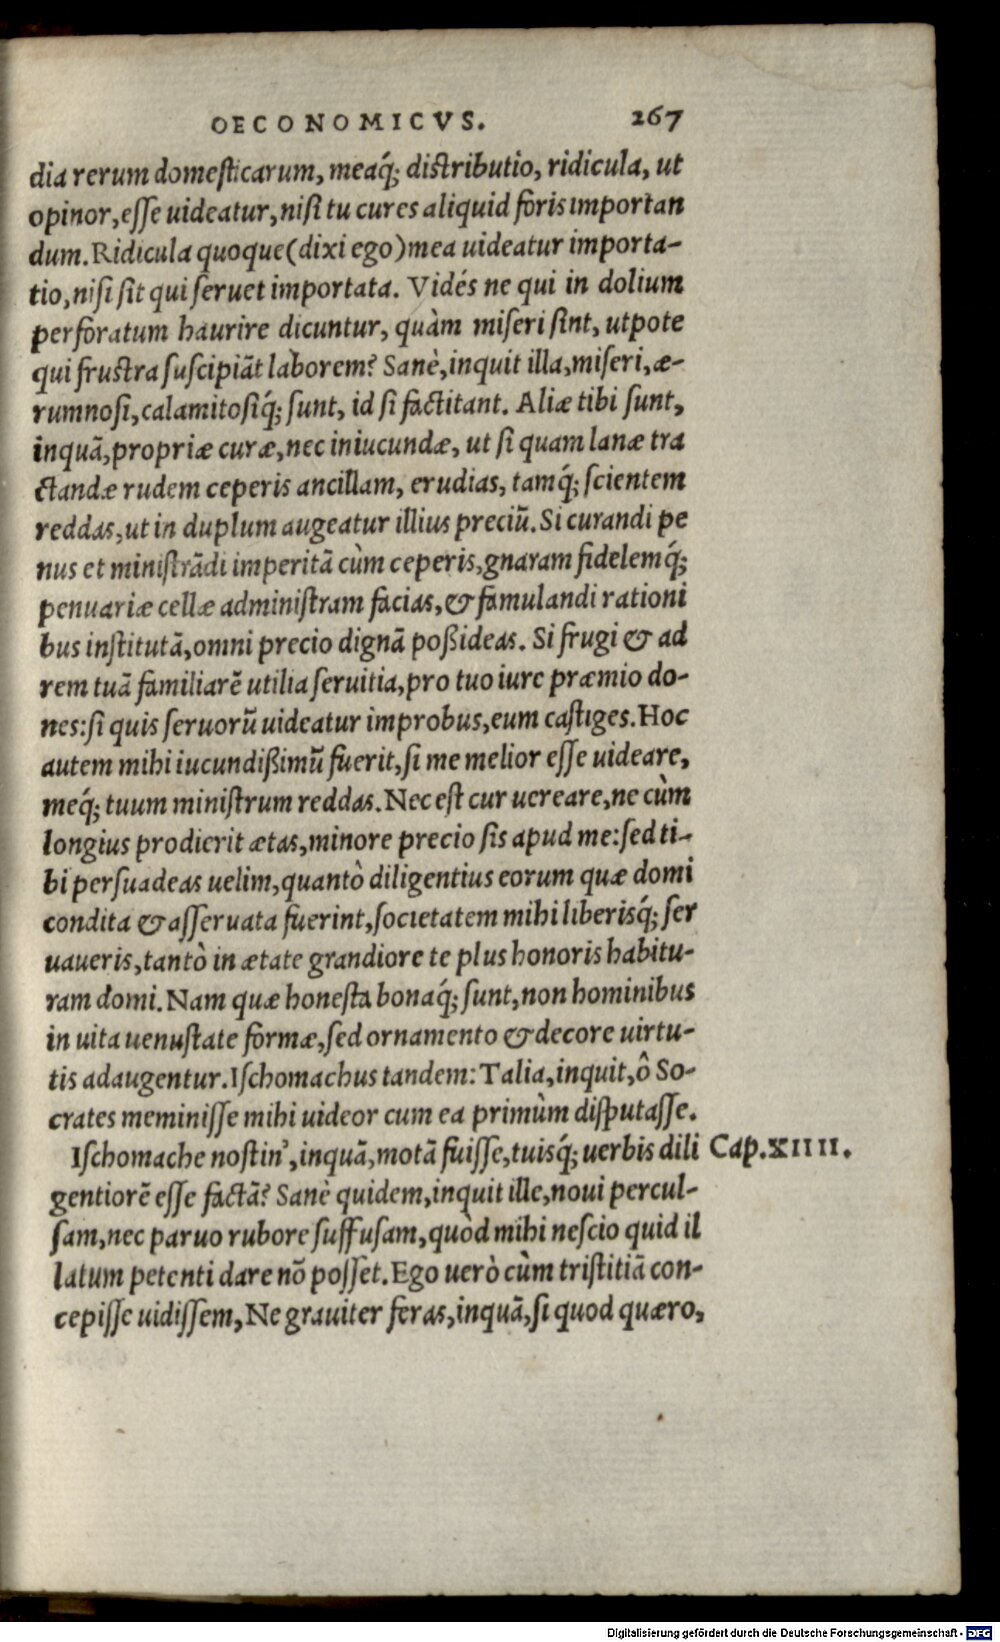 OECONOMICVS. 267
dia rerum domesticarum, meaq́; distributio, ridicula, ut
opinor, esse uideatur, nisi tu cures aliquid foris importan
dum. Ridicula quoque (dixi ego) mea uideatur importa-
tio, nisi sit qui seruet importata. Vidés ne qui in dolium
perforatum haurire dicuntur, quàm miseri sint, utpote
qui frustra suscipiāt laborem? Sanè, inquit illa, miseri, æ-
rumnosi, calamitosiq́; sunt, id si factitant. Aliæ tibi sunt,
inquā, propriæ curæ, nec iniucundæ, ut si quam lanæ tra
ctandæ rudem ceperis ancillam, erudias, tamq́; scientem
reddas, ut in duplum augeatur illius preciū. Si curandi pe
nus et ministrādi imperitā cùm ceperis, gnaram fidelemq́;
penuariæ cellæ administram facias, & famulandi rationi
bus institutā, omni precio dignā poßideas. Si frugi & ad
rem tuā familiarē utilia seruitia, pro tuo iure præmio do-
nes: si quis seruorū uideatur improbus, eum castiges. Hoc
autem mihi iucundißimū fuerit, si me melior esse uideare,
meq́; tuum ministrum reddas. Nec est cur uereare, ne cùm
longius prodierit ætas, minore precio sis apud me: sed ti-
bi persuadeas uelim, quantò diligentius eorum quæ domi
condita & asseruata fuerint, societatem mihi liberisq́; ser
uaueris, tantò in ætate grandiore te plus honoris habitu-
ram domi. Nam quæ honesta bonaq́; sunt, non hominibus
in uita uenustate formæ, sed ornamento & decore uirtu-
tis adaugentur. Ischomachus tandem: Talia, inquit, ô So-
crates meminisse mihi uideor cum ea primùm disputasse.
Ischomache nostin', inquā, motā fuisse, tuisq́; uerbis dili Cap. XIIII.
gentiorē esse factā? Sanè quidem, inquit ille, noui percul-
sam, nec paruo rubore suffusam, quòd mihi nescio quid il
latum petenti dare nō posset. Ego uerò cùm tristitiā con-
cepisse uidissem, Ne grauiter feras, inquā, si quod quæro,
Digitalisierung gefördert durch die Deutsche Forschungsgemeinschaft - DFG